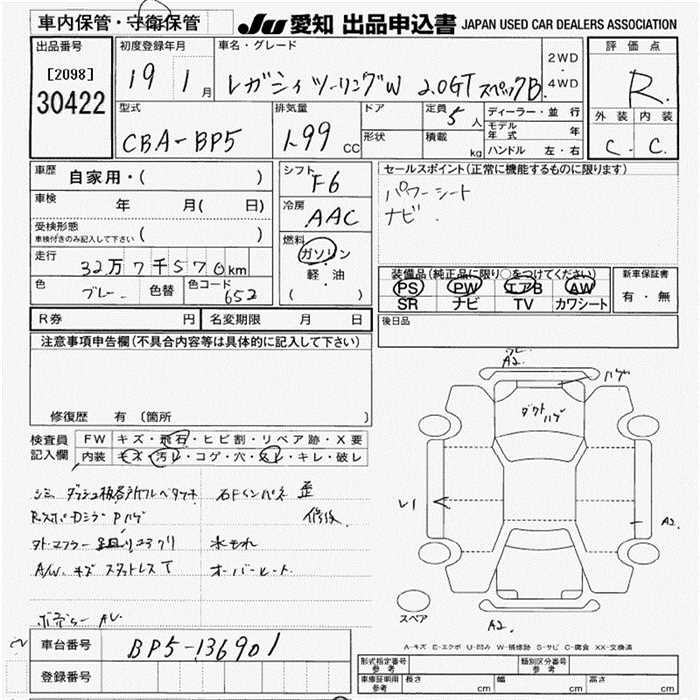 車内保管・守衛保管
JU 愛知 出品申込書 JAPAN USED CAR DEALERS ASSOCIATION
出品番号
[2098]
30422
初度登録年月
19 1月
車名・グレード
レガシィツーリングW 2.0GT スペックB
2WD
・
4WD
評価点
R
外装 内装
C C
型式
CBA-BP5
排気量
1.99 CC
ドア
形状
定員 5人
積載 kg
ディーラー・並行
モデル年式 年
ハンドル 左・右
車歴
自家用・( )
車検
年 月( 日)
受検形態
車検付きのみ記入して下さい ( )
走行
32万7千570km
色 ブレー 色替 色コード 652
シフト
F6
冷房
AAC
燃料
ガソリン
・
軽・油
( )
セールスポイント(正常に機能するものに限ります)
パワーシート
ナビ
装備品(純正品に限り○をつけてください)
PS PW エアB AW
SR ナビ TV カワシート
新車保証書
有・無
R券 円 名変期限 月 日
後日品
注意事項申告欄(不具合内容等は具体的に記入して下さい)
修復歴 有 (箇所 )
検査員
記入欄
FW キズ・飛石・ヒビ割・リペア跡・X要
内装 キズ・汚レ・コゲ・穴・スレ・キレ・破レ
石Fインパネ 歪
修後
水もれ
A/W キズ スタットレスT オーバーヒート
A2
ハゲ
ダクト
ハゲ
レ1
A2
スペア
A2
A-キズ E-エクボ U-凹み W-補修跡 S-サビ C-腐食 XX-交換済
車台番号
BP5-136901
登録番号
形式指定番号
参考
類別区分番号
参考
車庫証明用
参考
長さ cm 幅 cm 高さ cm